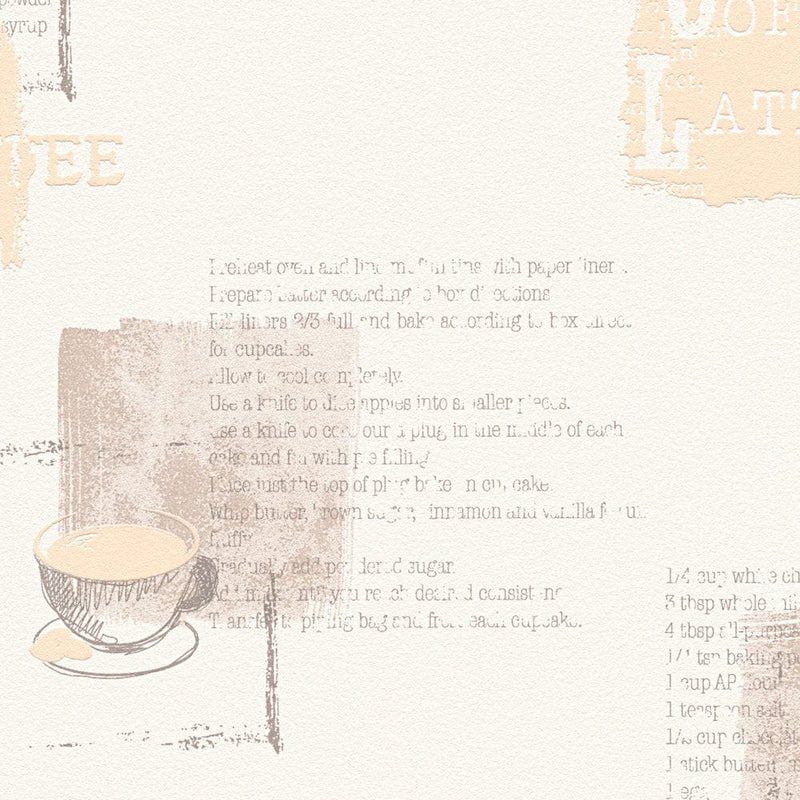 powder
syrup
OF
LATT
FEE
Preheat oven and line muffin tins with paper liners.
Prepare batter according to box directions
Fill liners 2/3 full and bake according to box direc
for cupcakes.
Allow to cool completely.
Use a knife to dice apples into smaller pieces.
Use a knife to core our a plug in the middle of each
cake and fill with pie filling
Place just the top of plug bake in cup cake.
Whip butter, brown sugar, cinnamon and vanilla
fluffy
Gradually add powdered sugar.
Add milk until you reach desired consistenc
Transfer to piping bag and frost each cupcake.
1/4 cup white ch
3 tbsp whole mil
4 tbsp all-purpose
1/4 tsp baking po
1 cup AP flour
1 teaspoon salt.
1/2 cup chocolate
1 stick butter
1 egg